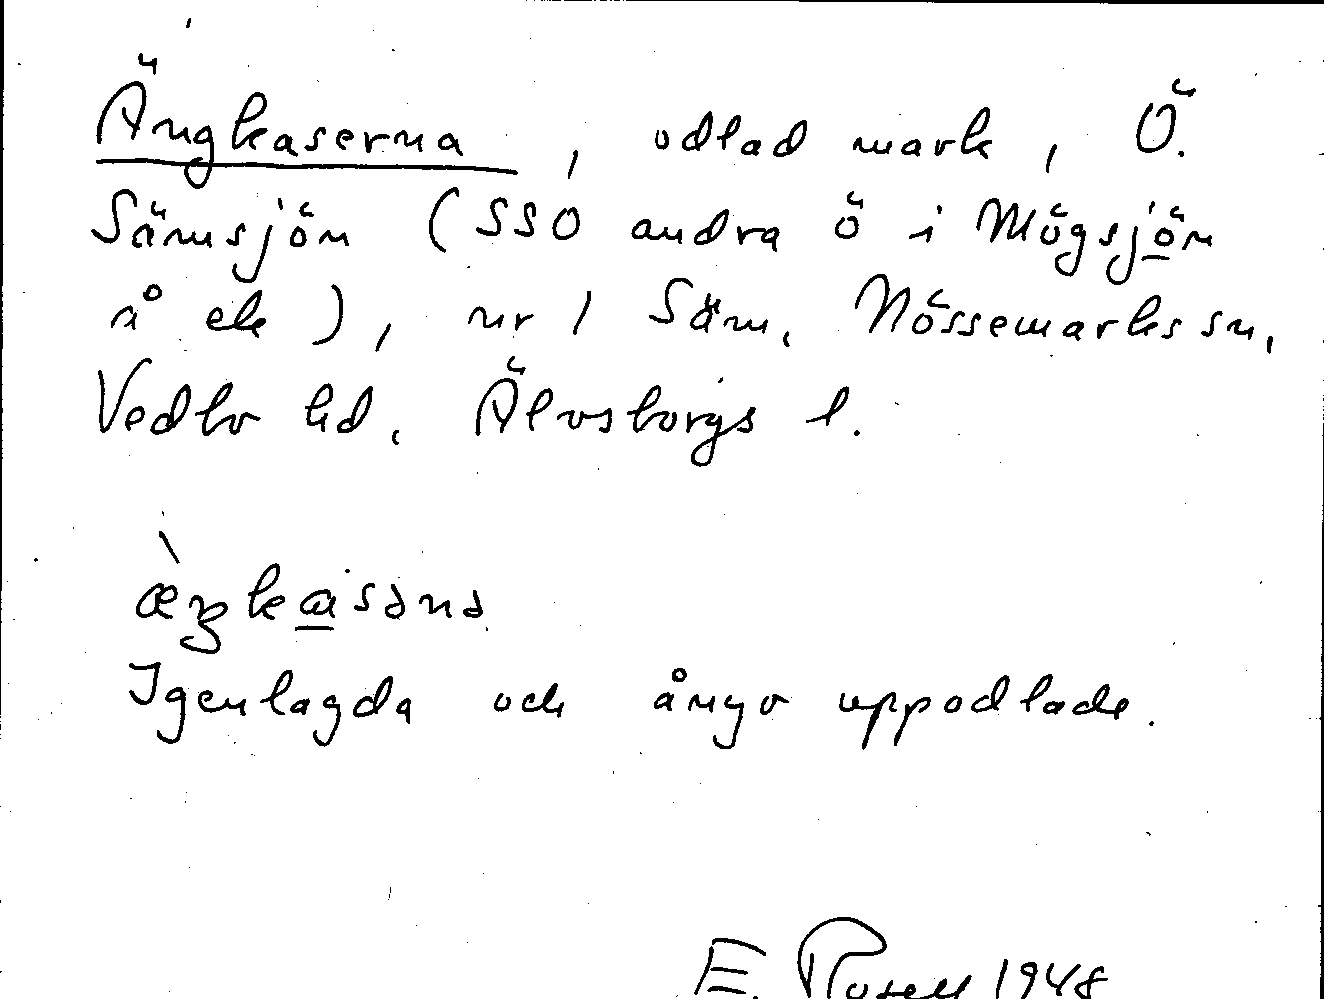 Ängkaserna, odlad mark, Ö.
Sämsjön (SSO andra ö i Mögsjön
å ek), nr 1 Säm, Nössemarks sn,
Vedbo hd, Älvsborgs l.
æ̀ŋkasəna
Igenlagda och ånyo uppodlade.
E. Rosell 1948